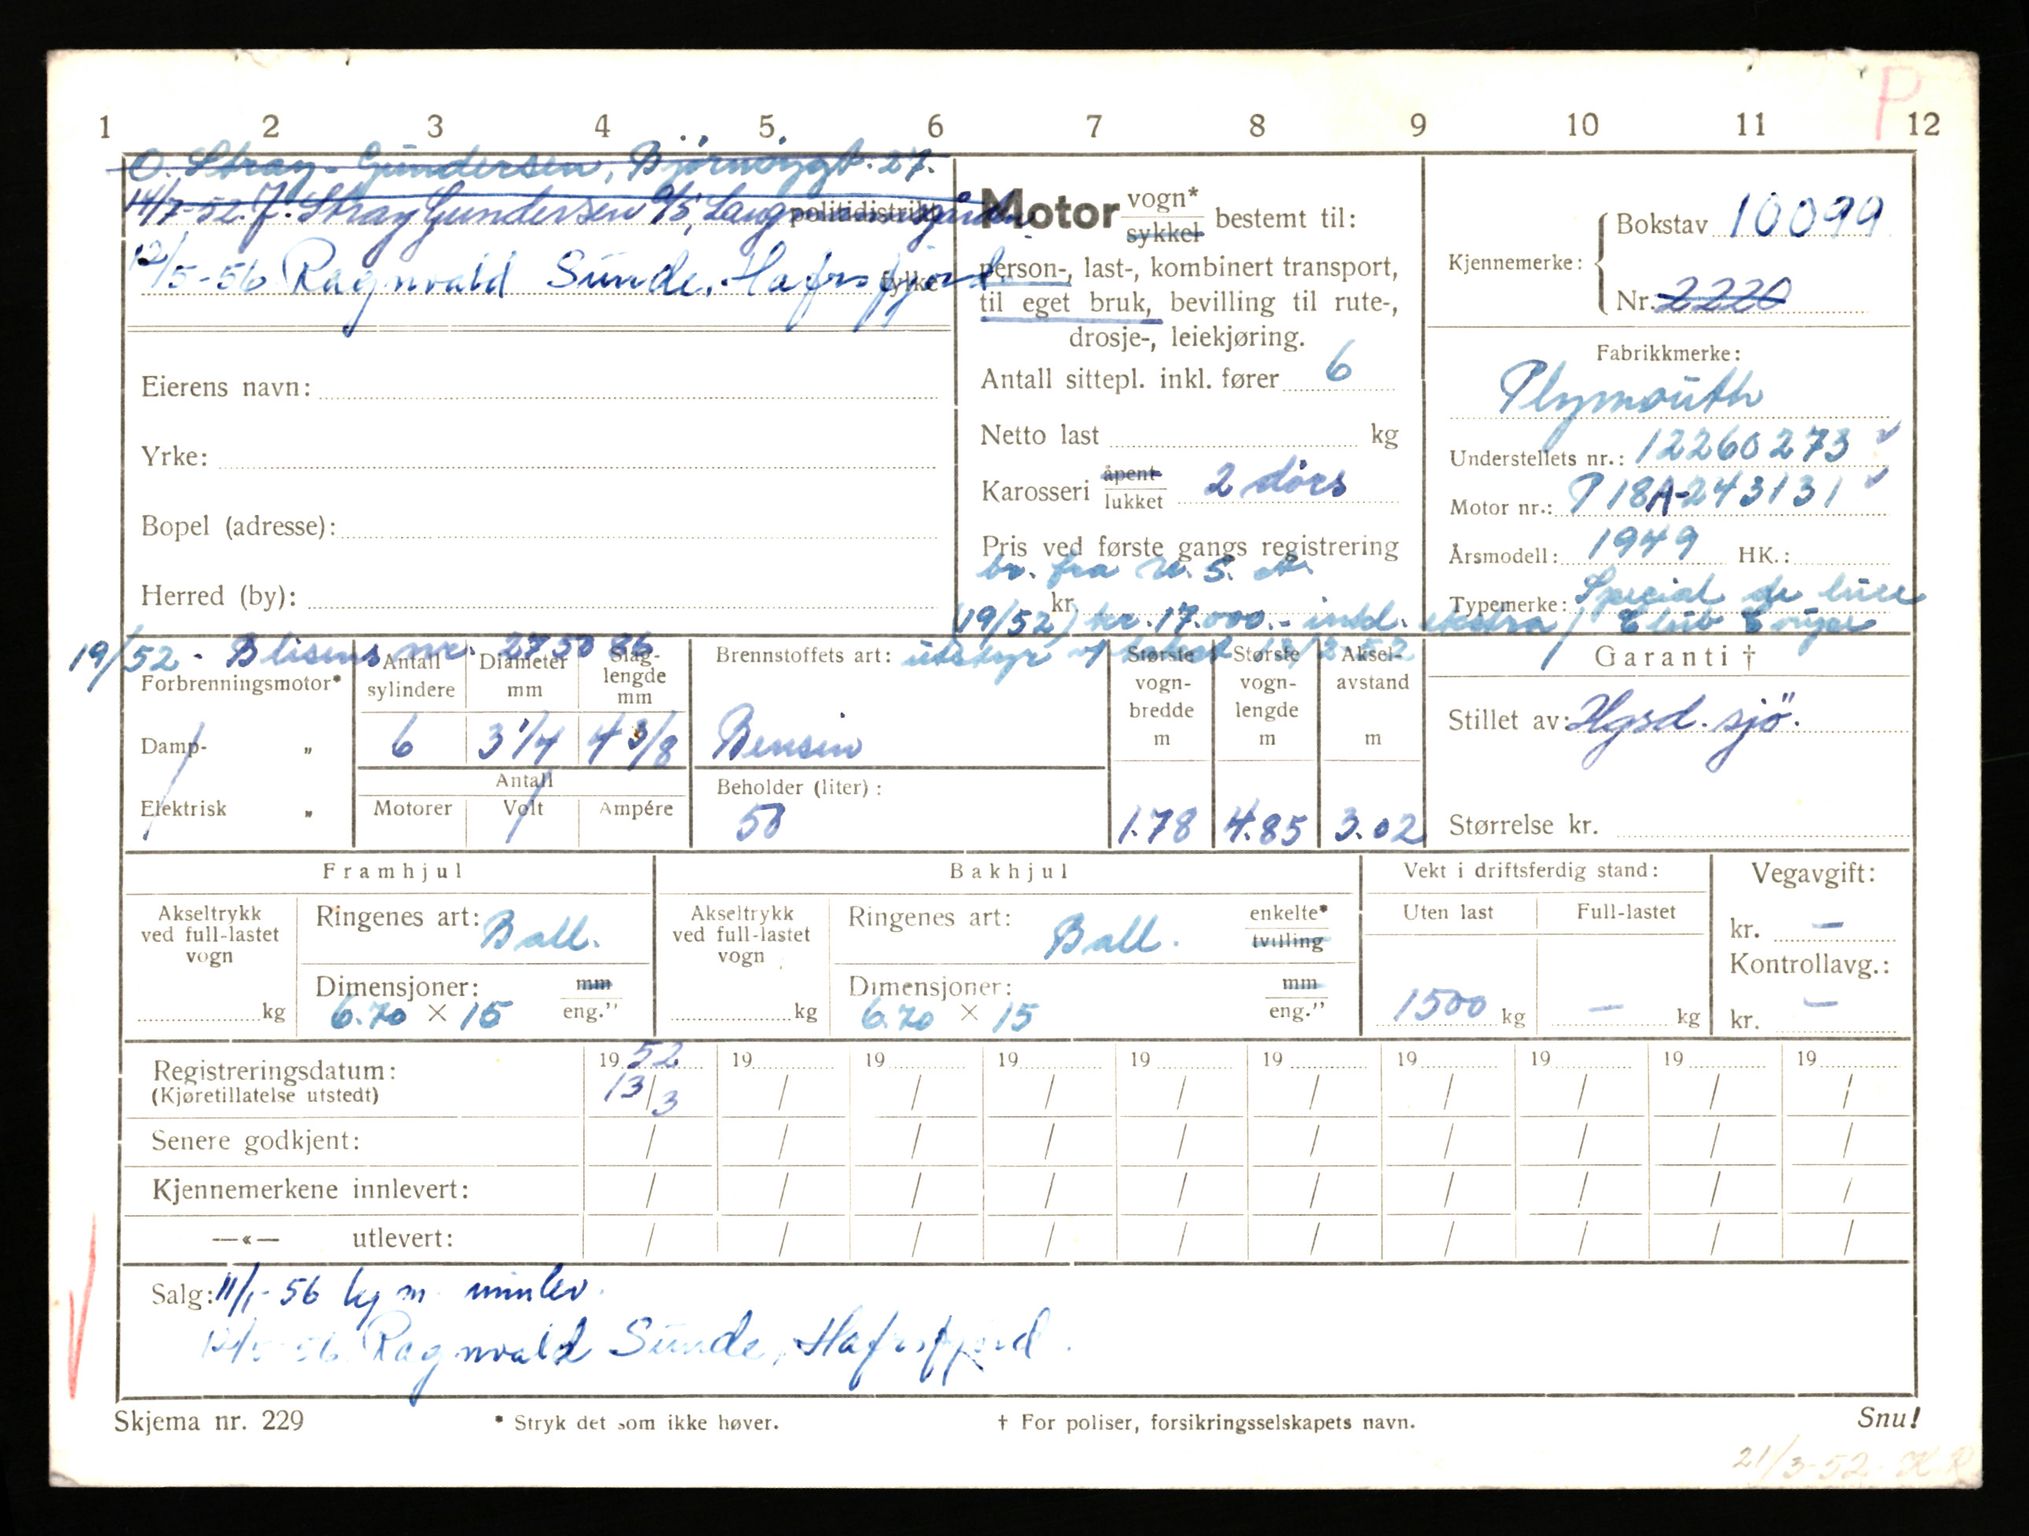 1 2 3 4 5 6 7 8 9 10 11 12
P
O. Stray-Gundersen, Bjørnøygt. 27.
14/7-52. J. Stray Gundersen politidistrikt
12/5-56 Ragnvald Sunde, Hafrsfjord fylke
Eierens navn:
Yrke:
Bopel (adresse):
Herred (by):
Motor vogn* sykkel bestemt til:
person-, last-, kombinert transport,
til eget bruk, bevilling til rute-,
drosje-, leiekjøring.
Antall sittepl. inkl. fører 6
Netto last kg
Karosseri åpent lukket 2 dörs
Pris ved første gangs registrering
br. fra U.S.A.
kr.
(19/52) kr. 17.000.- inkl. ekstra
utstyr
Kjennemerke: Bokstav 10099
Nr. 2220
Fabrikkmerke:
Plymouth
Understellets nr.: 12260273
Motor nr.: P18A-243131
Årsmodell: 1949 HK.:
Typemerke: Special de luxe
Club Coupe
19/52 - Blisens nr. 275086
Forbrenningsmotor*
Damp- "
Elektrisk "
Antall sylindere 6
Diameter mm 3 1/4
Slaglengde mm 4 3/8
Antall
Motorer Volt Ampére
Brennstoffets art:
Bensin
Beholder (liter):
50
Største vognbredde m 1.78
Største vognlengde m 4.85
Akselavstand m 3.02
Garanti †
Stillet av: Hgsd. sjö.
Størrelse kr.
Framhjul
Akseltrykk ved full-lastet vogn
kg
Ringenes art: Ball.
Dimensjoner: mm
6.70 × 15 eng."
Bakhjul
Akseltrykk ved full-lastet vogn
kg
Ringenes art: Ball. enkelte* tvilling
Dimensjoner: mm
6.70 × 15 eng."
Vekt i driftsferdig stand:
Uten last Full-lastet
1500 kg — kg
Vegavgift:
kr. —
Kontrollavg.:
kr. —
Registreringsdatum: 1952 19 19 19 19 19 19 19 19 19
(Kjøretillatelse utstedt) 13/3 / / / / / / / / /
Senere godkjent: / / / / / / / / / /
Kjennemerkene innlevert: / / / / / / / / / /
—«— utlevert: / / / / / / / / / /
Salg: 11/1-56 kj m. innlev.
12/5-56 Ragnvald Sunde, Hafrsfjord.
Skjema nr. 229
* Stryk det som ikke høver.
† For poliser, forsikringsselskapets navn.
Snu!
21/3-52